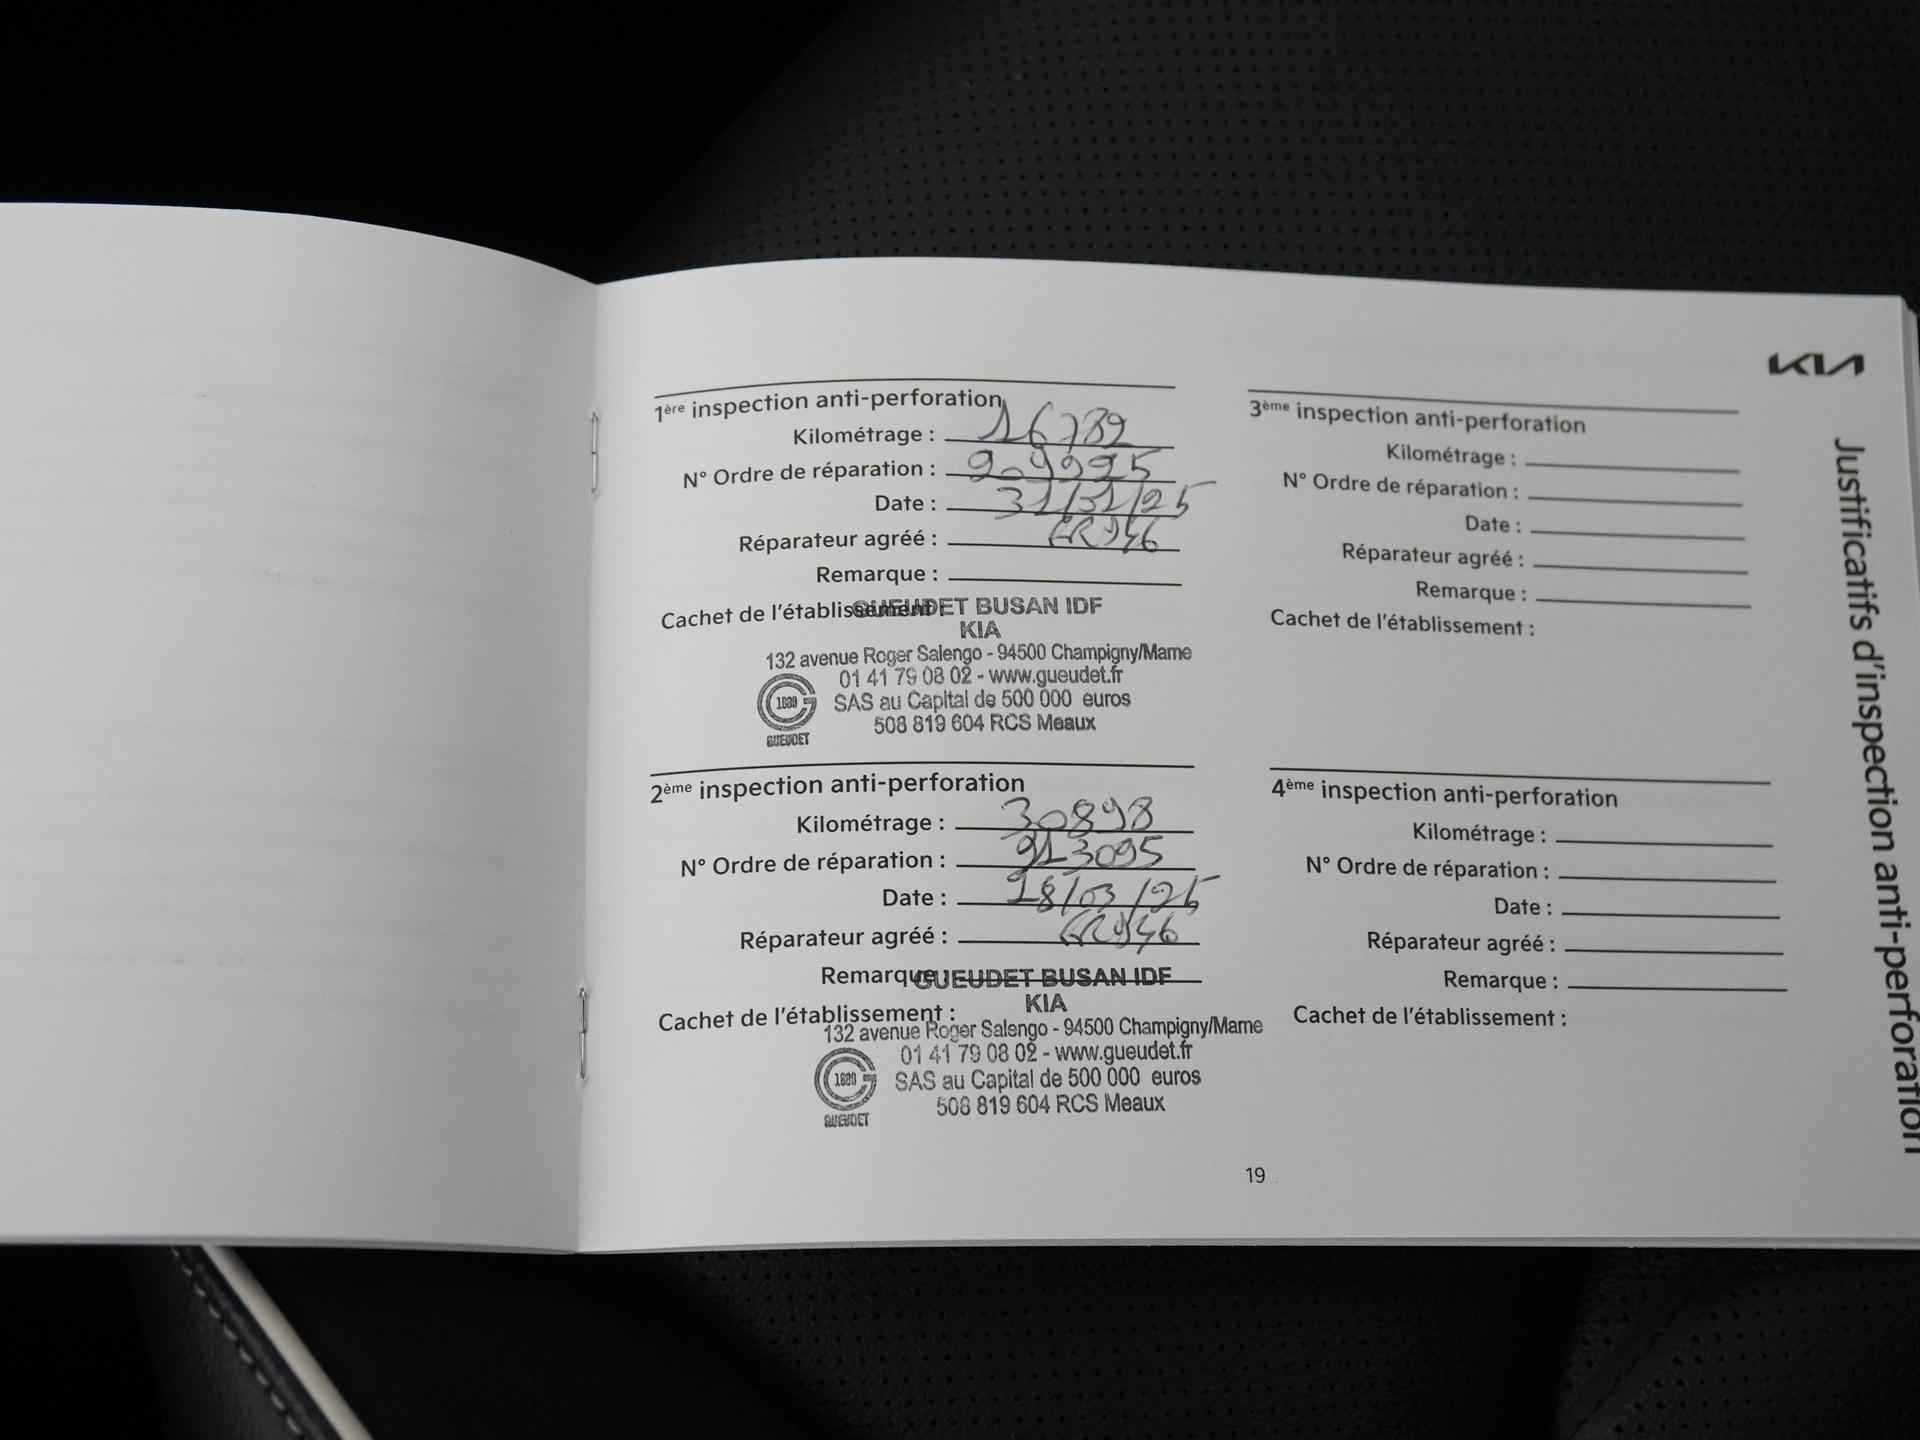 KIA
Justificatifs d'inspection anti-perforation
1ère inspection anti-perforation
Kilométrage : 16789
N° Ordre de réparation : 909995
Date : 31/01/25
Réparateur agréé :
Remarque :
Cachet de l'établissement :
GUEUDET BUSAN IDF
KIA
132 avenue Roger Salengo - 94500 Champigny/Marne
01 41 79 08 02 - www.gueudet.fr
SAS au Capital de 500 000 euros
508 819 604 RCS Meaux
1880
GUEUDET
2ème inspection anti-perforation
Kilométrage : 30898
N° Ordre de réparation : 913095
Date :
Réparateur agréé :
Remarque :
Cachet de l'établissement :
GUEUDET BUSAN IDF
KIA
132 avenue Roger Salengo - 94500 Champigny/Marne
01 41 79 08 02 - www.gueudet.fr
SAS au Capital de 500 000 euros
508 819 604 RCS Meaux
1880
GUEUDET
3ème inspection anti-perforation
Kilométrage :
N° Ordre de réparation :
Date :
Réparateur agréé :
Remarque :
Cachet de l'établissement :
4ème inspection anti-perforation
Kilométrage :
N° Ordre de réparation :
Date :
Réparateur agréé :
Remarque :
Cachet de l'établissement :
19